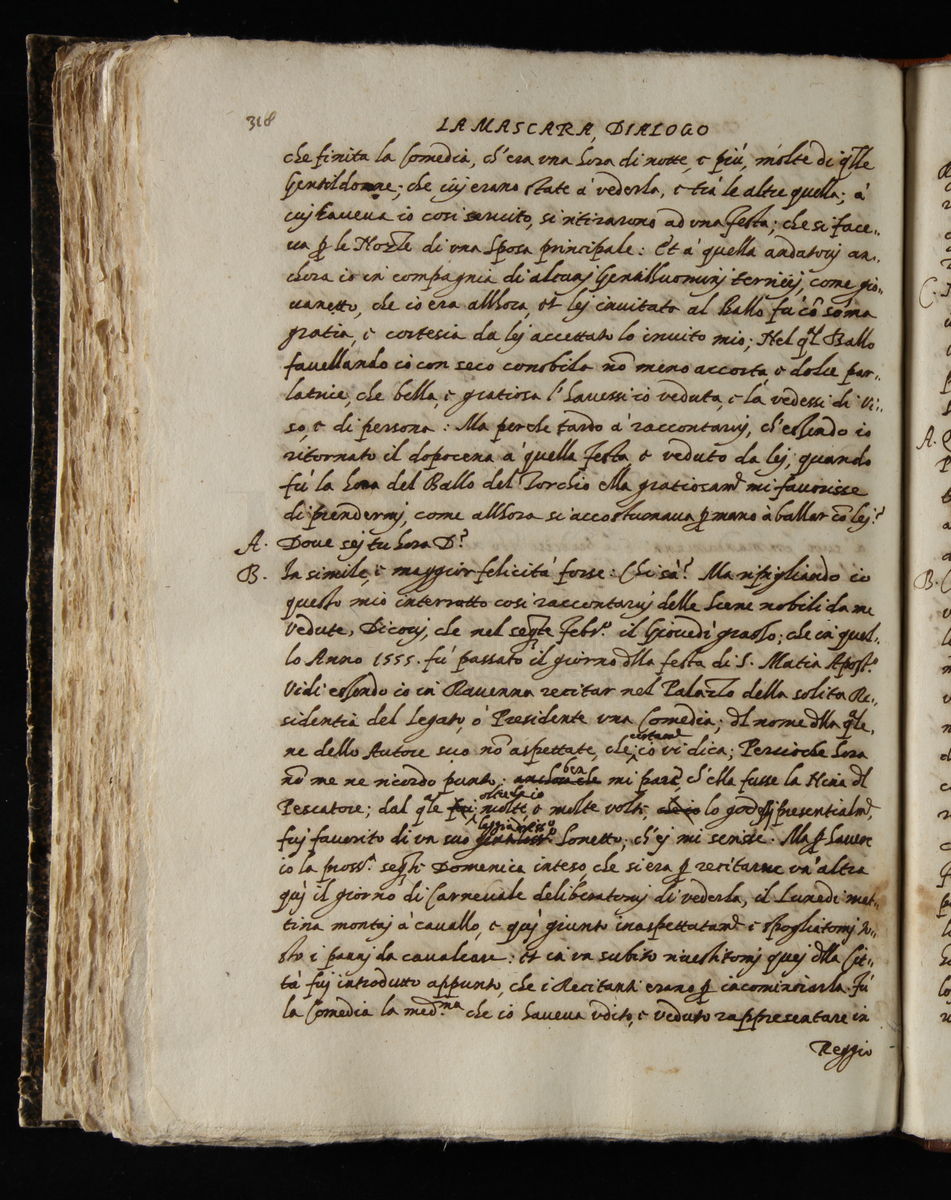 318
LA MASCARA, DIALOGO
che finita la Comedia, ch'era una hora di notte, e più, molte di q̃lle
Gentildonne; che iuj erano state à vederla, e trà le altre quella; à
cuj haueua io cosi seruito, si ritirarono ad una festa; che si face„
ua p̱ le Nozze di una Sposa principale: Et à quella andatouj an„
chora io in compagnia di alcunj Gentilhuominj terrierj, come gio„
uanetto, che io era allhora, et lej inuitata al Ballo fù cõ sõma
gratia, e cortesia da lej accettato lo inuito mio; Nel q̃l Ballo
fauellando io con seco conobila nõ meno accorta, e dolce par„
latrice, che bella, e gratiosa l'hauessi io veduta, e la vedessi di Vi„
so, e di persona: Ma perche tardo à raccontaruj, ch'essendo io
ritornato il dopocena à quella festa e veduto da lej, quando
fù la hora del Ballo del Torchio ella gratiosam.te mi fauorisse
di prendermj, come allhora si accostumaua p̱ mano à ballar cõ lej?
A. Doue sej tu hora D?
B. In simile, e maggior felicità forse: Chi sà? Ma ripigliando io
questo mio interrotto cosi raccontaruj delle Scene nobili da me
vedute, Dicouj, che nel seg̃te Febr.º il Giouedì grasso; che in quel„
lo Anno 1555. fù passato il giorno d̃lla festa di S. Matia Apost.º
Vidi essendo io in Rauenna recitar nel Palazzo della solita Re„
sidentia del Legato, ò Presidente una Comedia; d̃l nome d̃lla q̃le,
ne dello Autore suo nõ aspettate, che certam.te io vi dica; Percioche hora
nõ me ne ricordo punto: anchora che ben mi pare, ch'ella fusse la d̃l
Pescatore; dal q̃le oltre che io molte, e molte volte, lo presentialm.te
fuj fauorito di un suo leggiadriss.º Sonetto; ch'ej mi scrisse. Ma p̱ hauere
io la pross.ª seg̃te Domenica inteso, che si era p̱ recitarne un'altra
quj il giorno di Carneuale deliberatomj di vederla, il Lunedi mat„
tina montaj à cauallo, e quj giunto inaspettatam.te e spogliatomj to„
sto i pannj da caualcare: et in un subito riuestitomj quej d̃lla Cit„
tà fuj introdutto appunto, che i Recitanti erano p̱ incominciarla. Fù
la Comedia la med.ma che io haueua udito, e veduto rappresentare in
Reggio